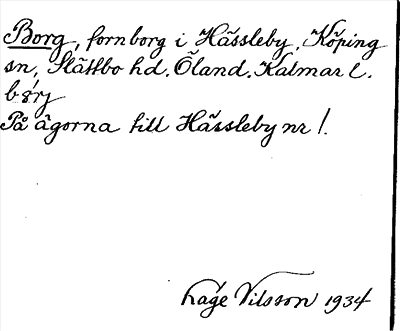 Borg, fornborg i Hässleby, Köping
sn, Slättbo hd. Öland. Kalmar l.
På ägorna till Hässleby nr 1.
Hage Nilsson 1934